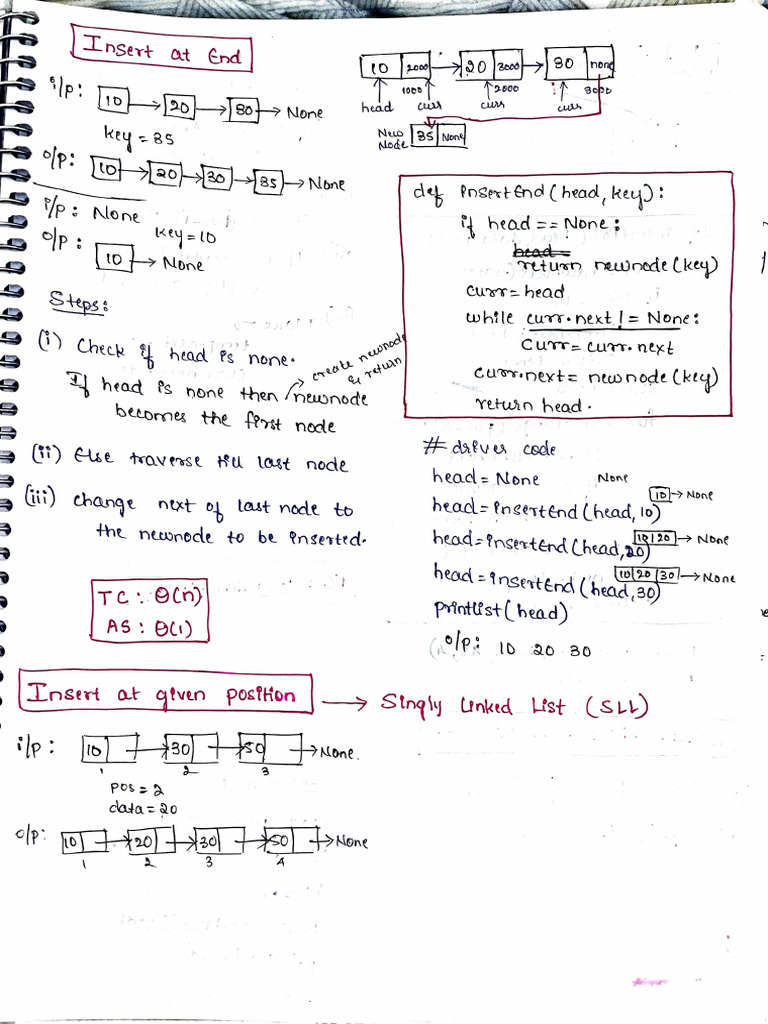 Insert at End
i/p: 10 → 20 → 30 → None
key = 35
o/p: 10 → 20 → 30 → 35 → None
i/p: None
key = 10
o/p: 10 → None
10 2000 → 20 3000 → 30 none
1000 2000 3000
head curr curr curr
New Node 35 None
Steps:
(i) Check if head is none.
If head is none then newnode
→ create newnode & return
becomes the first node
(ii) Else traverse till last node
(iii) change next of last node to
the newnode to be inserted.
TC: θ(n)
AS: θ(1)
def insertEnd(head, key):
if head == None:
head =
return newnode(key)
curr = head
while curr.next != None:
curr = curr.next
curr.next = newnode(key)
return head.
# driver code
head = None None
head = insertEnd(head, 10) 10 → None
head = insertEnd(head, 20) 10 20 → None
head = insertEnd(head, 30) 10 20 30 → None
printlist(head)
o/p: 10 20 30
Insert at given position → Singly Linked List (SLL)
i/p: 10 → 30 → 50 → None.
1 2 3
pos = 2
data = 20
o/p: 10 → 20 → 30 → 50 → None
1 2 3 4